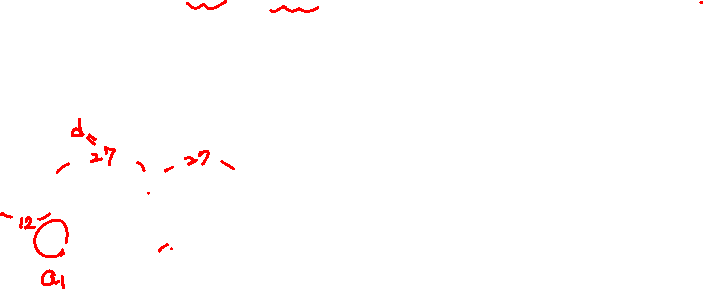 d=
27 27
12
a1